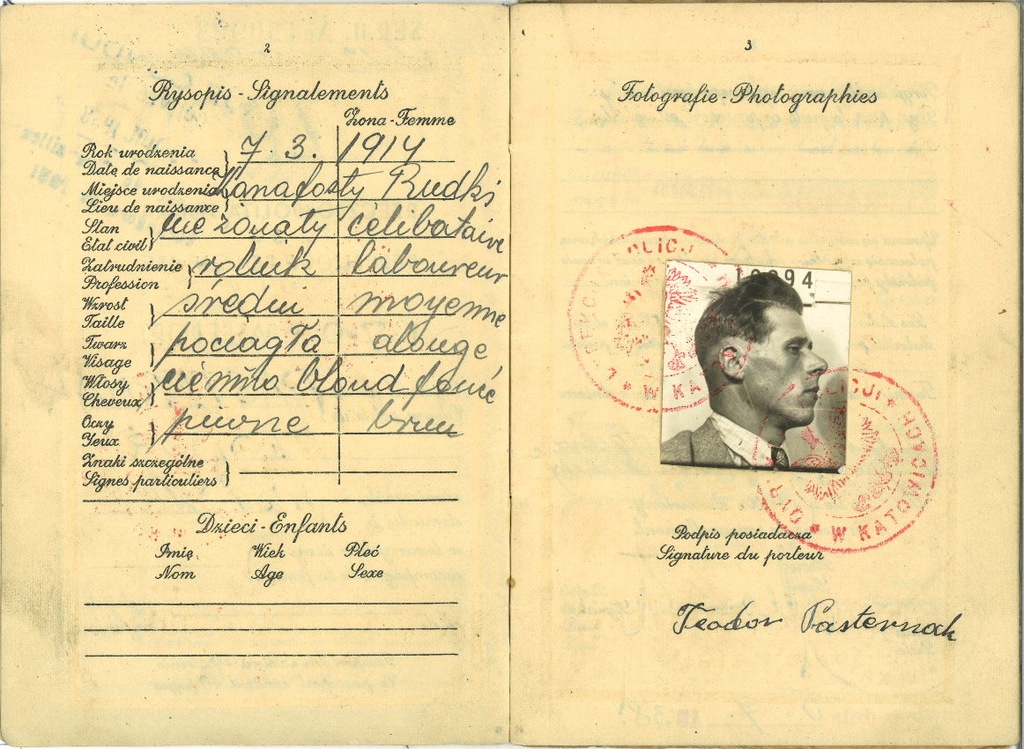 2
Rysopis - Signalements
Żona - Femme
Rok urodzenia
Date de naissance
7. 3. 1914
Miejsce urodzenia
Lieu de naissance
Rudki
Stan
Etat civil
nieżonaty célibataire
Zatrudnienie
Profession
rolnik laboureur
Wzrost
Taille
średni moyenne
Twarz
Visage
pociągła alongé
Włosy
Cheveux
ciemno blond foncé
Oczy
Yeux
piwne brun
Znaki szczególne
Signes particuliers
Dzieci - Enfants
Imię Wiek Płeć
Nom Age Sexe
3
Fotografie - Photographies
W KATOWICACH
Podpis posiadacza
Signature du porteur
Teodor Pasternak